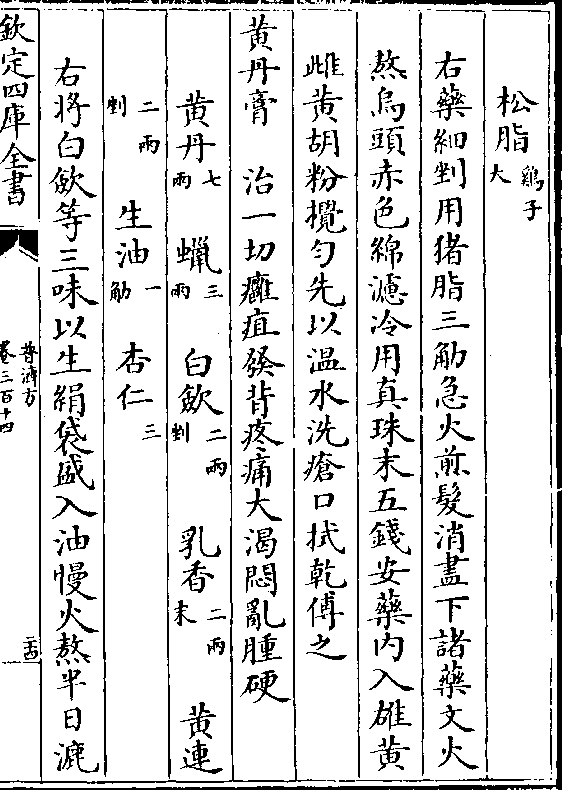 松脂鷄子大
右藥細剉用猪脂三觔急火煎髮消盡下諸藥文火
熬烏頭赤色綿濾冷用真珠末五錢安藥内入雄黄
雌黄胡粉攪匀先以温水洗瘡口拭乾傅之
黄丹膏 治一切癰疽發背疼痛大渴悶亂腫硬
黄丹七兩 蠟三兩 白歛二兩剉 乳香二兩末 黄連
二兩剉 生油一觔 杏仁三
右將白歛等三味以生絹袋盛入油慢火熬半日漉
欽定四庫全書
普濟方
卷三百十四
二十四